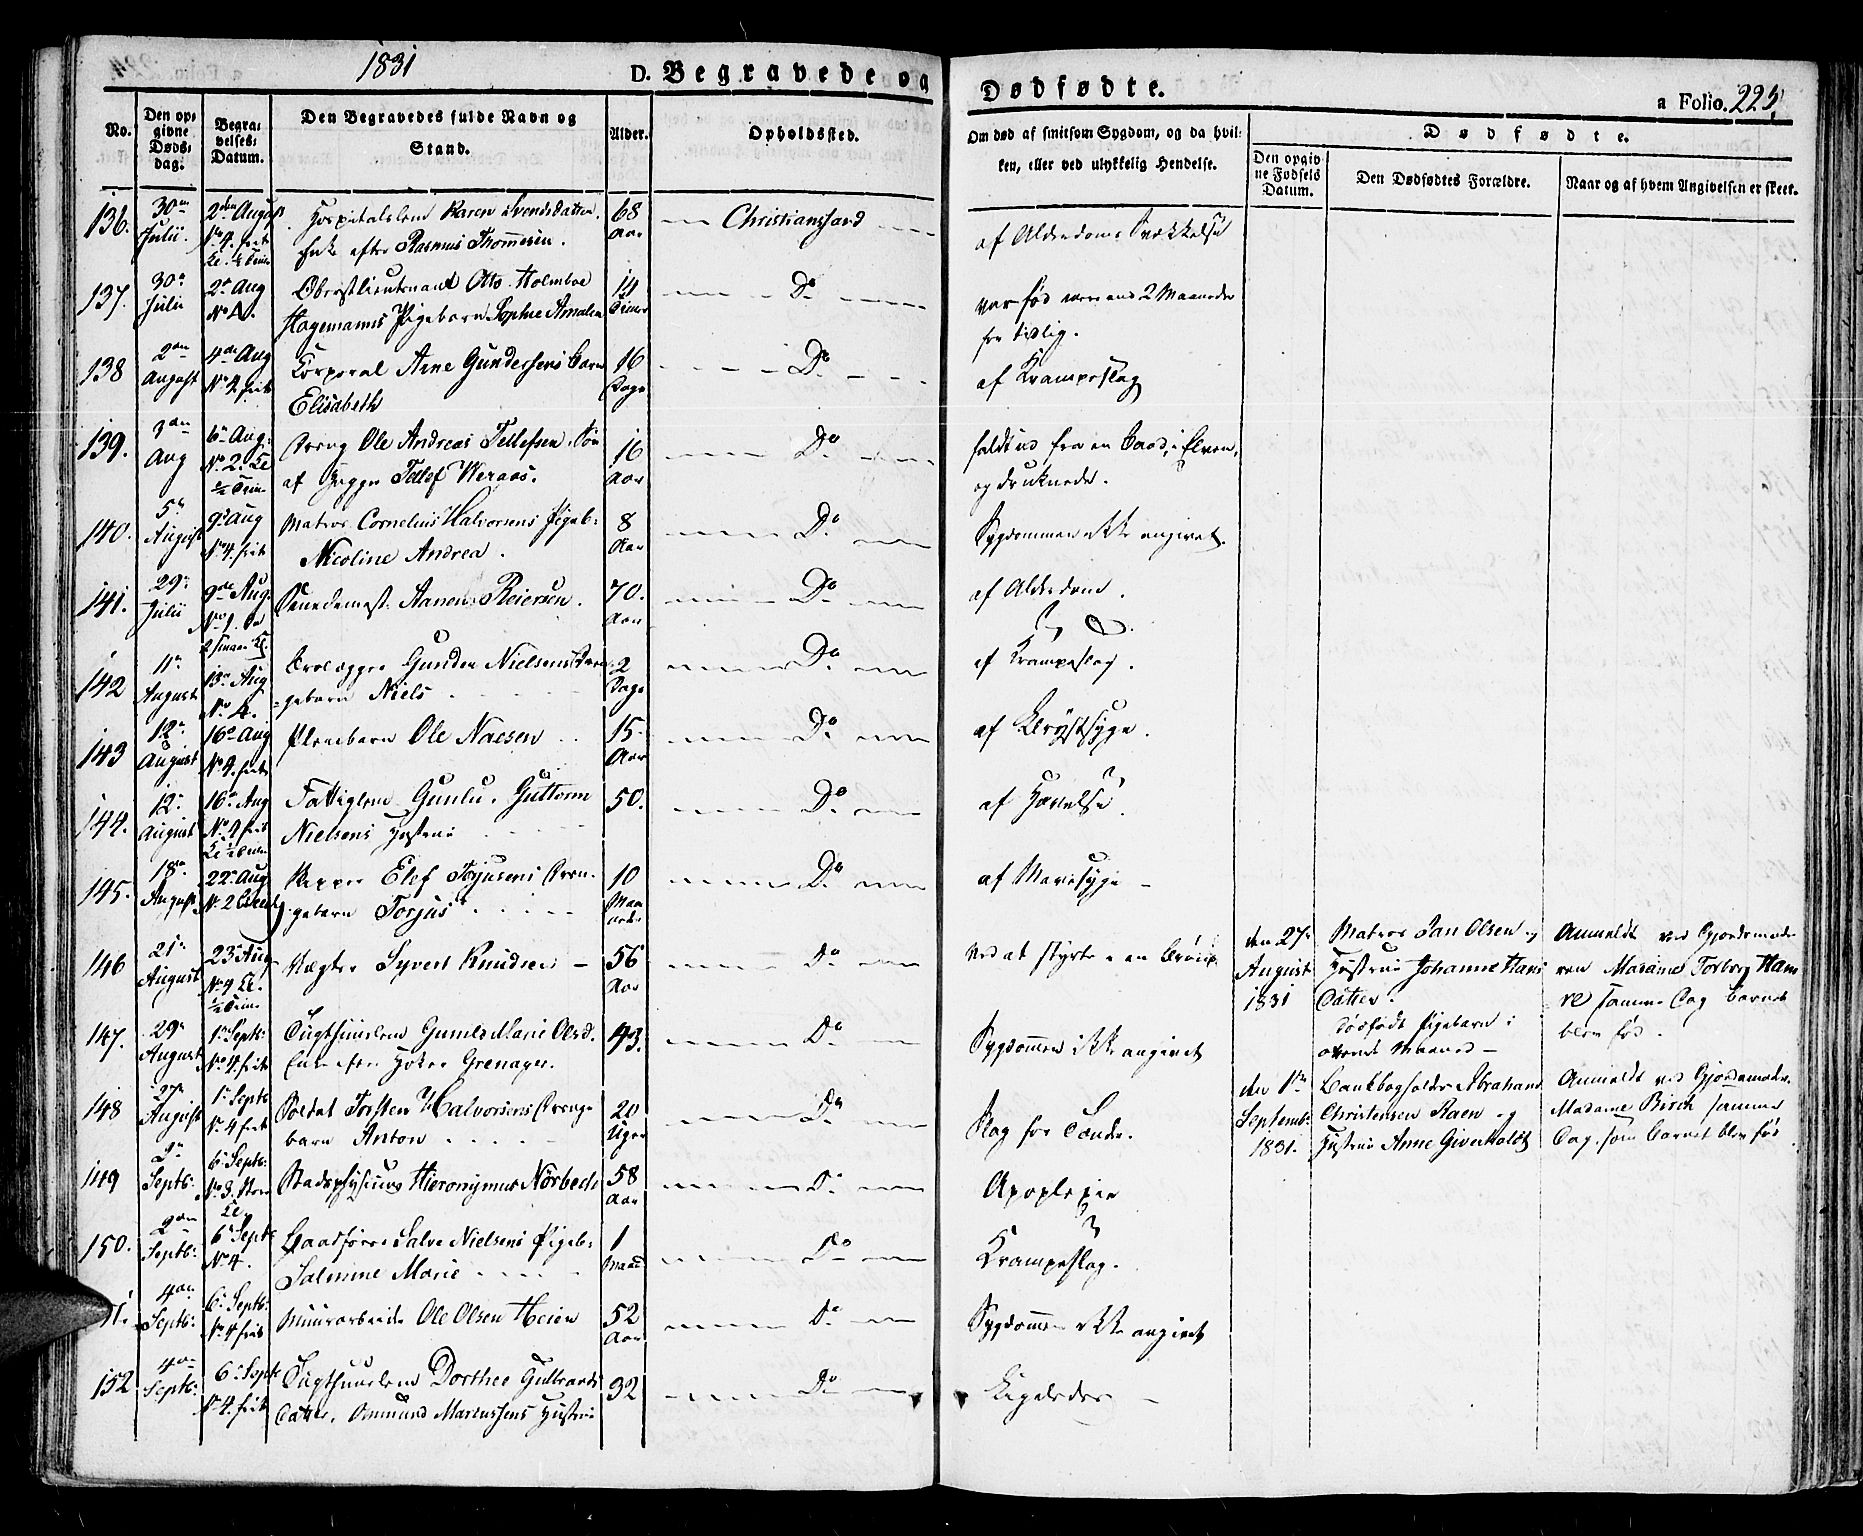 1831
D. Begravede og
Dødfødte.
a Folio. 225,
No.
Den op=
givne
Døds=
dag.
Begra=
velses=
Datum.
Den Begravedes fulde Navn og
Stand.
Alder.
Opholdssted.
Om død af smitsom Sygdom, og da hvil=
ken, eller ved ulykkelig Hendelse.
Dødfødte.
Den opgiv=
ne Fødsels
Datum.
Den Dødfødtes Forældre.
Naar og af hvem Angivelsen er skeet.
136.
30te
Julii.
2den August
No 4. frit
Hospitalslem Karen Svendsdatter,
Enke efter Rasmus Thommesen.
68
Aar
Christianssand
af Alderdoms Svækkelse
137.
30te
Julii
2de Aug
No 4.
Oberstlieutenant Otto Holmboe
Hagemanns Pigebarn Sophie Amalia
14
Timer
Do
var fød mere end 2 Maaneder
for tidlig.
138
2den
August
4de Aug
No 4. frit
Corporal Arne Gundersens Barn
Elisabeth
16
Dage
Do
af Krampeslag
139.
3den
Aug
6te Aug.
No 2.
Dreng Ole Andreas Tellefsen, Søn
af Tellef Weraas.
16
Aar
Do
faldt ud fra en Baad, i Elven,
og druknede.
140.
5te
August
9de Aug
No 4. frit
Matros Cornelius Halvorsens Pigeb:
Nicoline Andrea.
8
Aar
Do
Sygdommen ikke angivet.
141.
29de
Julii
9de Aug.
No 1.
Aanen Reiersen.
70.
Aar
Do
af Alderdom.
142
11te
August
13de Aug
No 4.
Brolægger Gunder Nielsens Dren=
gebarn Niels
2
Dage
Do
af Krampeslag.
143
12te
August
16de Aug
No 4. frit
Pleiebarn Ole Naesen
15.
Aar
Do
af Brystsyge.
144.
12te
August
16de Aug
No 4 frit
Fattiglem Gunlu, Guttorm
Nielsens Hustrue
50.
Do
af Hævelse
145.
18de
August
22de Aug
No 2
Elef Torjusens Dren=
gebarn Torjus
10
Maa
neder
Do
af Mavesyge
146
21de
August
23de Aug
No 4
Vægter Syvert Knudsen
56
Aar
Do
ved at styrte i en Brønd
den 27de
August
1831
Matros Jan Olsen og
Hustrue Johanne Hans
Datter.
dødfødt Pigebarn i
ottende Maaned
Anmeldt ved Gjordemode
ren Madame Torborg Han
samme Dag Barnet
blev fød.
147.
29de
August
1te Septb:
No 4. frit
Tugthuuslem Gunild Marie Olsd.
Enke efter Grenager.
43.
Do
Sygdommen ikke angivet
148
27de
August
1te Septb
No 4 frit
Soldat Torsten Halvorsens Drenge
barn Anton
20
Uger
Do
Slag for Tænder.
den 1te
Septemb:
1831.
Bankbogholder Abraham
Christensen Raen og
Hustrue Anne Giverholdt
Anmeldt ved Gjordemoder
Madame Birch samme
Dag, som Barnet blev fød
149
2de
Septb:
6te Septb:
No 3.
Stadsphysicus Hieronymus Nørbech
58
Aar
Do
Apoplexie
150.
2den
Septb:
6te Septb
No 4.
Baadfører Salve Nielsens Pigeb:
Salmine Marie
1
Maaned
Do
Krampeslag.
4de
Septb:
6te Septb:
No 4 frit
Muurarbeider Ole Olsen Heien
52
Aar
Do
Sygdommen ikke angivet
152
4de
Septb:
6te Septb
No 4. frit
Tugthuuslem Dorthee Gulbrands
Datter, Omund Martenssens Hustrue
32
Do